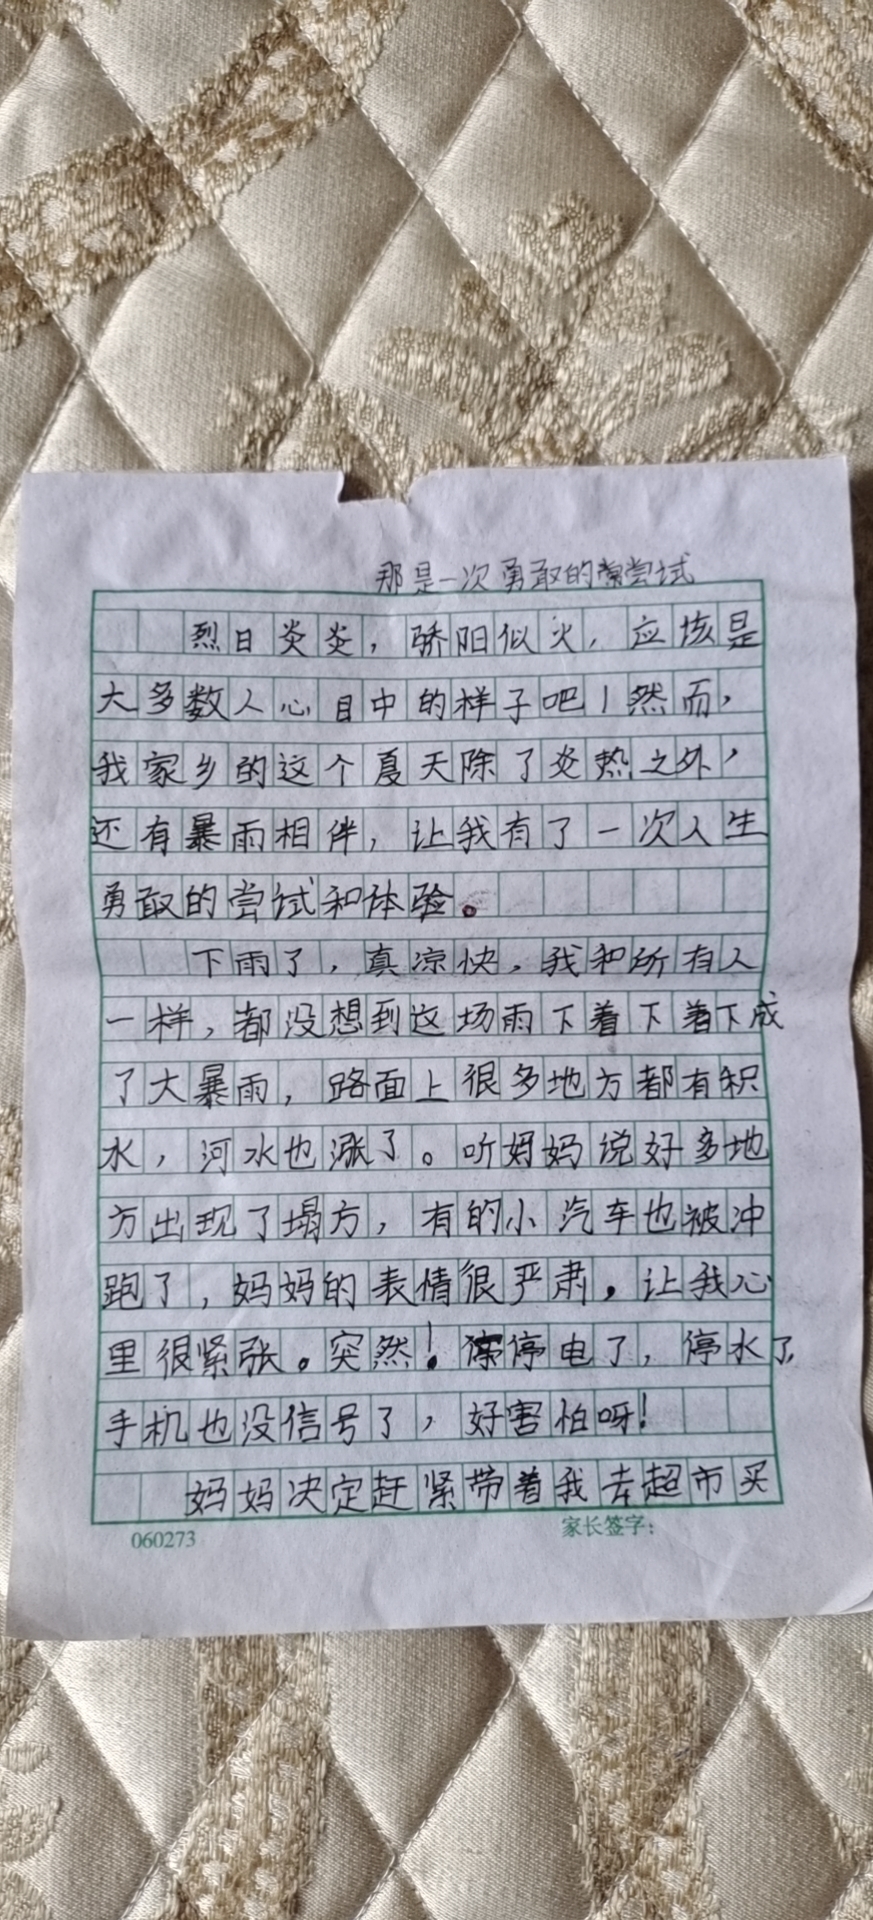 那是一次勇敢的尝试
烈日炎炎，骄阳似火，应该是
大多数人心目中的样子吧！然而，
我家乡的这个夏天除了炎热之外，
还有暴雨相伴，让我有了一次人生
勇敢的尝试和体验。
下雨了，真凉快，我和所有人
一样，都没想到这场雨下着下着下成
了大暴雨，路面上很多地方都有积
水，河水也涨了。听妈妈说好多地
方出现了塌方，有的小汽车也被冲
跑了，妈妈的表情很严肃，让我心
里很紧张。突然！停电了，停水了，
手机也没信号了，好害怕呀！
妈妈决定赶紧带着我去超市买
060273
家长签字：